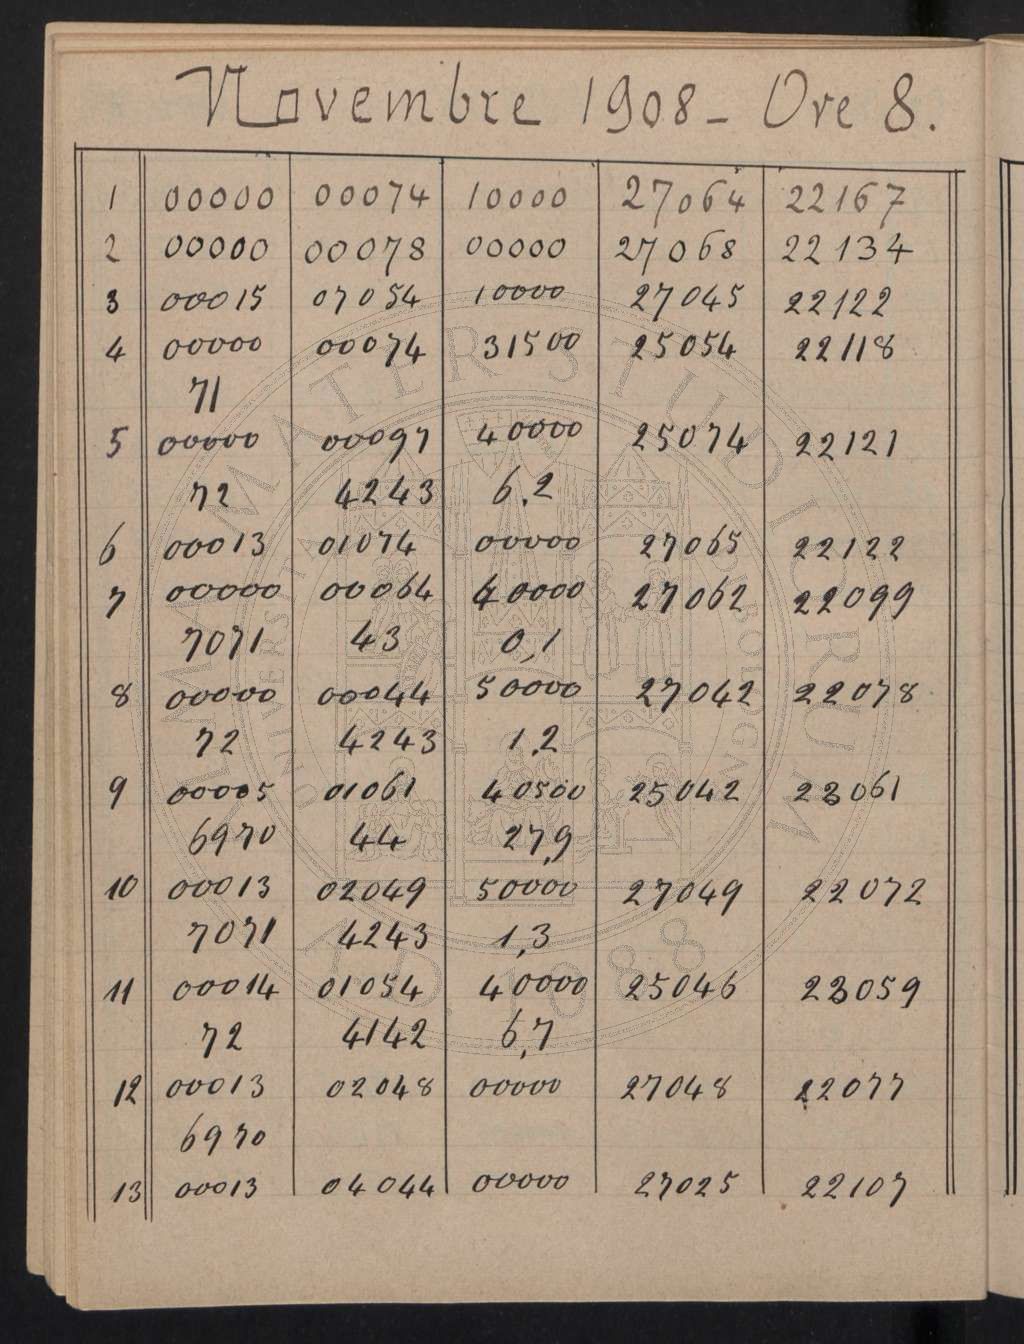 Novembre 1908 - Ore 8.
1 00000 00074 10000 27064 22167
2 00000 00078 00000 27068 22134
3 00015 07054 10000 27045 22122
4 00000 00074 31500 25054 22118
71
5 00000 00097 40000 25074 22121
72 4243 6,2
6 00013 01074 00000 27065 22122
7 00000 00064 40000 27062 22099
7071 43 0,1
8 00000 00044 50000 27042 22078
72 4243 1,2
9 00005 01061 40500 25042 23061
6970 44 27,9
10 00013 02049 50000 27049 22072
7071 4243 1,3
11 00014 01054 40000 25046 23059
72 4142 6,7
12 00013 02048 00000 27048 22077
6970
13 00013 04044 00000 27025 22107
ALMA MATER STUDIORUM
A.D. 1088